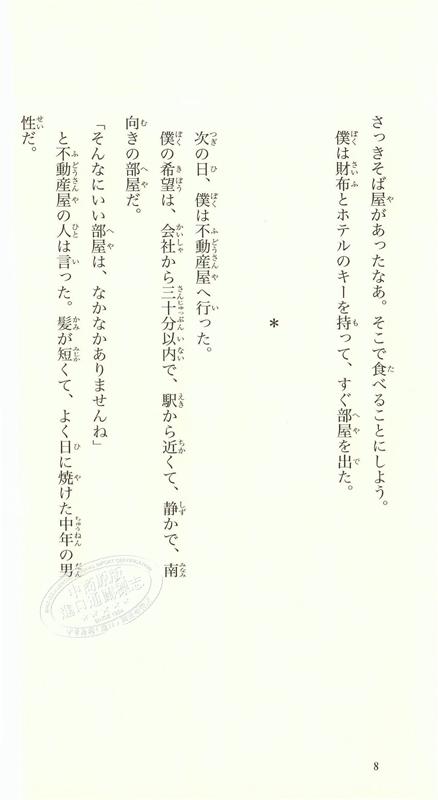 さっきそば屋があったなあ。そこで食べることにしよう。
僕は財布とホテルのキーを持って、すぐ部屋を出た。
*
次の日、僕は不動産屋へ行った。
僕の希望は、会社から三十分以内で、駅から近くて、静かで、南
向きの部屋だ。
「そんなにいい部屋は、なかなかありませんね」
と不動産屋の人は言った。髪が短くて、よく日に焼けた中年の男
性だ。
8